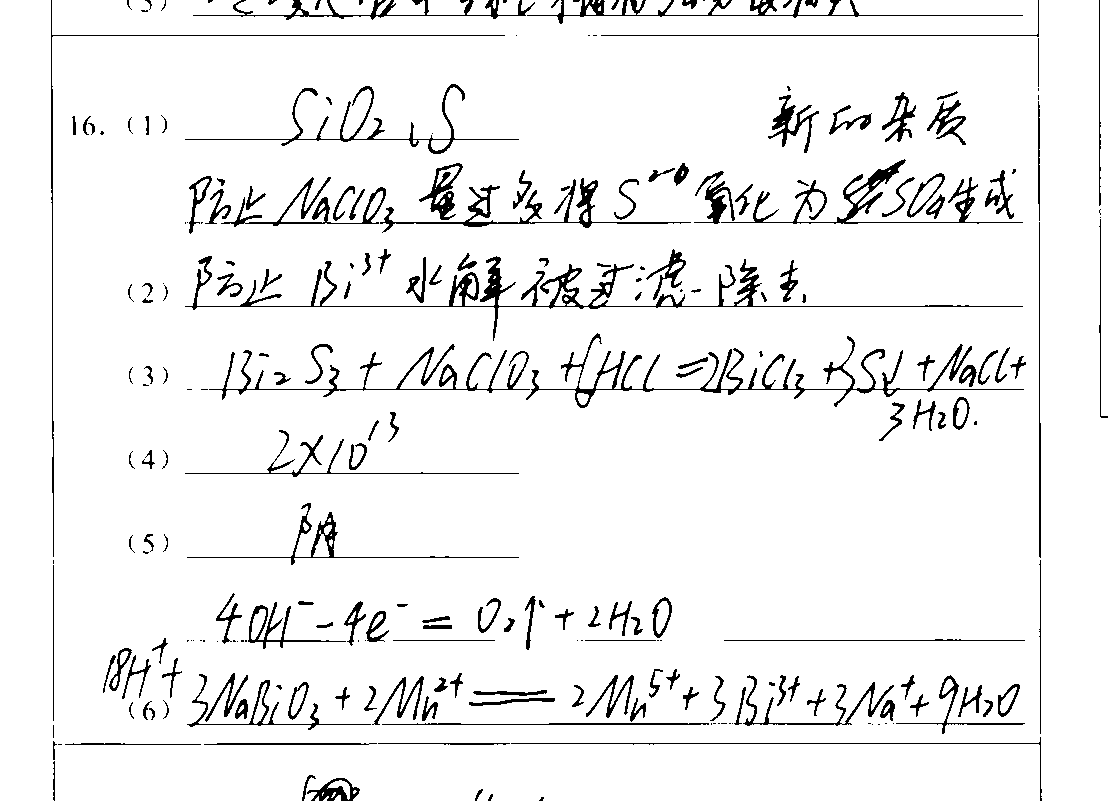 16.（1） SiO₂、S
新的杂质
防止 NaClO₃ 量过多将 S²⁻ 氧化为 SO₄ 生成
（2） 防止 Bi³⁺ 水解被过滤除去
（3） Bi₂S₃ + NaClO₃ + 6HCl = 2BiCl₃ + 3S↓ + NaCl +
3H₂O.
（4） 2×10¹³
（5） 阴
4OH⁻ - 4e⁻ = O₂↑ + 2H₂O
18H⁺ +
（6） 3NaBiO₃ + 2Mn²⁺ = 2Mn⁵⁺ + 3Bi³⁺ + 3Na⁺ + 9H₂O